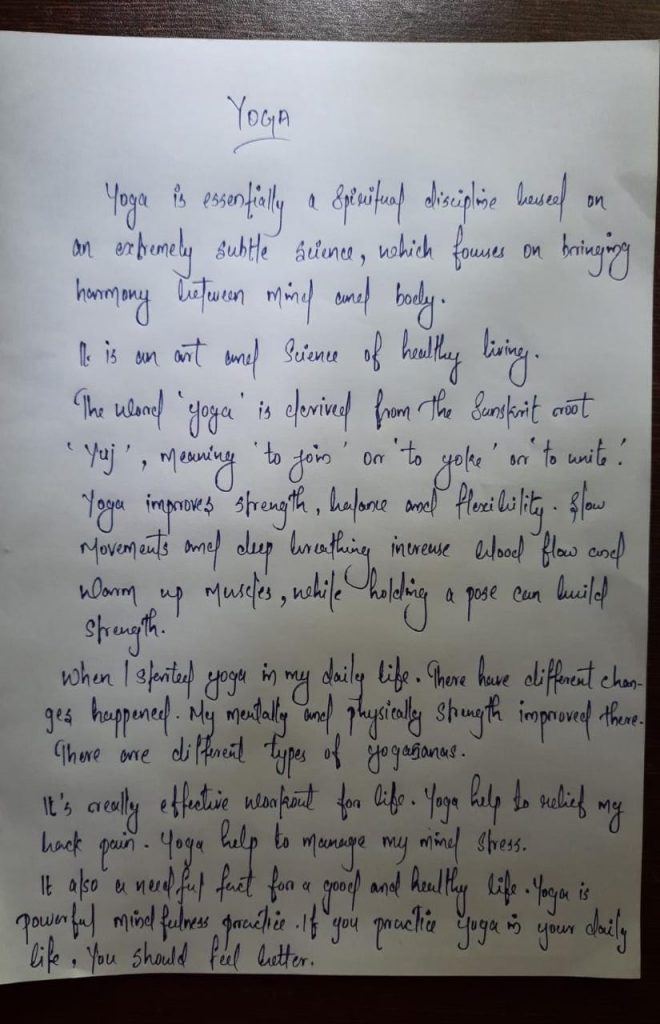 YOGA
Yoga is essentially a spiritual discipline based on
an extremely subtle science, which focuses on bringing
harmony between mind and body.
It is an art and Science of healthy living.
The word 'yoga' is derived from the Sanskrit root
'Yuj', meaning 'to join' or 'to yoke' or 'to unite'.
Yoga improves strength, balance and flexibility. Slow
movements and deep breathing increase blood flow and
warm up muscles, while holding a pose can build
strength.
When I started yoga in my daily life. There have different chan-
ges happened. My mentally and physically strength improved there.
There are different types of yogasanas.
It's really effective workout for life. Yoga help to relief my
back pain. Yoga help to manage my mind stress.
It also a needful fact for a good and healthy life. Yoga is
powerful mindfulness practice. If you practice yoga in your daily
life, You should feel better.